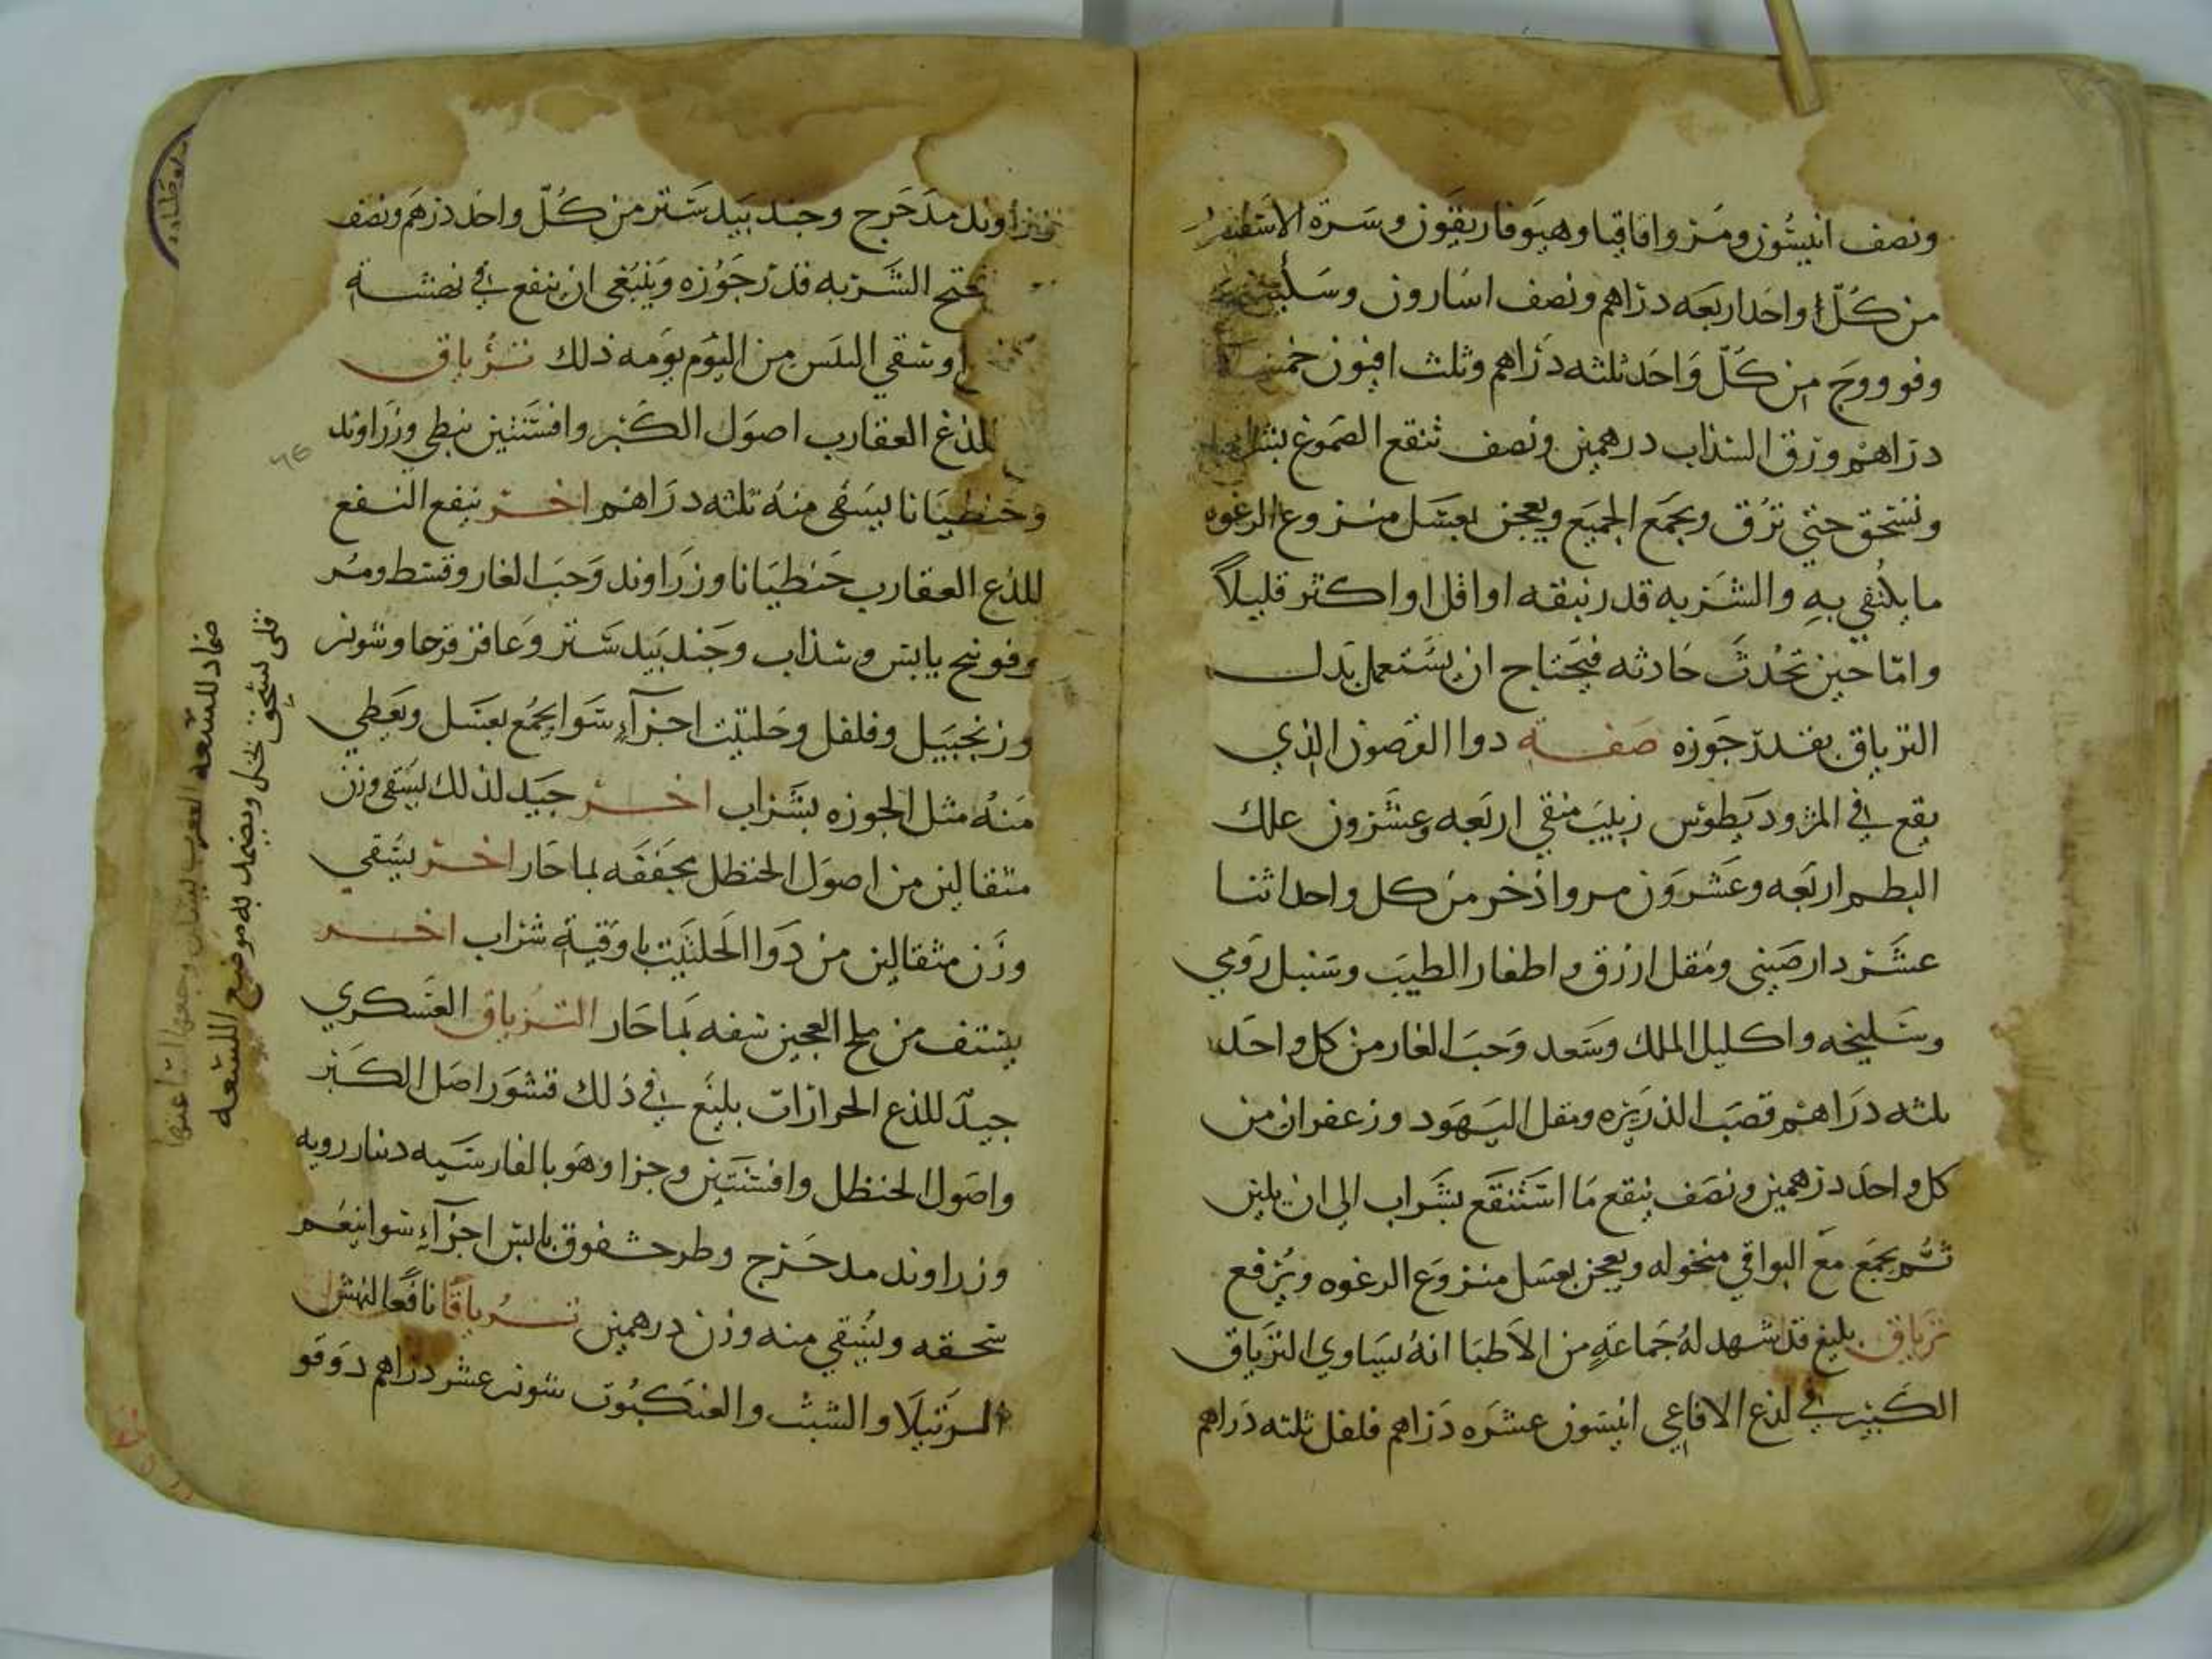 ونصف انيسون ومر واقاقيا وهيوفاريقون وسرة الاسقنقور
من كل واحد اربعه دراهم ونصف اسارون وسليخه
وفو ووج من كل واحد ثلثه دراهم وثلث افيون خمسه
دراهم وزق السذاب درهمين ونصف تنقع الصموغ بشراب
وتسحق حتي ترق ويجمع الجميع ويعجن بعسل منزوع الرغوه
ما يكتفي به والشربه قدر نبقه او اقل او اكثر قليلاً
واما حين تحدث حادثه فيحتاج ان يستعمل بدل
الترياق بقدر جوزه صفة دوا القرصون الذي
يقع في المثروديطوس زبيب منقي اربعه وعشرون علك
البطم اربعه وعشرون مر واذخر من كل واحد اثنا
عشر دار صيني ومقل ازرق واظفار الطيب وسنبل رومي
وسليخه واكليل الملك وسعد وحب الغار من كل واحد
ثلثه دراهم قصب الذريره ومقل اليهود وزعفران من
كل واحد درهمين ونصف ينقع ما استنقع بشراب الي ان يلين
ثم يجمع مع البواقي منخوله ويعجن بعسل منزوع الرغوه ويرفع
ترياق بليغ قد شهد له جماعةٍ من الاطبا انه يساوي الترياق
الكبير في لذع الافاعي انيسون عشره دراهم فلفل ثلثه دراهم
وزراوند مدحرج وجندبيدستر من كل واحد درهم ونصف
الشربه قدر جوزه وينبغي ان ينفع في نهشة
وسقي اللبن من اليوم يومه ذلك ترياق
للذع العقارب اصول الكبر وافسنتين نبطي وزراوند
وجنطيانا يسقي منه ثلثه دراهم اخر ينفع النفع
للذع العقارب جنطيانا وزراوند وحب الغار وقسط ومر
وفوتنج يابس وسذاب وجندبيدستر وعاقر قرحا وشونيز
وزنجبيل وفلفل وحلتيت اجزآء سوا يجمع بعسل ويعطي
منه مثل الجوزه بشراب اخر جيد لذلك يسقي وزن
مثقالين من اصول الحنظل مجففه بما حار اخر يسقي
وزن مثقالين من دوا الحلتيت باوقية شراب اخر
يستف من ملح العجين سفه بما حار الترياق العسكري
جيد للذع الجرارات بليغ في ذلك قشور اصل الكبر
واصول الحنظل وافسنتين وجزا وهو بالفارسيه دينار رويه
وزراوند مدحرج وطرحشقوق يابس اجزآء سوا ينعم
سحقه ويسقي منه وزن درهمين ترياقا نافعا لنهش
الرتيلا والشبث والعنكبوت شونيز عشر دراهم دوقو
ضماد للسعه العقرب
قلي يسحق بخل ويضمد به موضع اللسعه